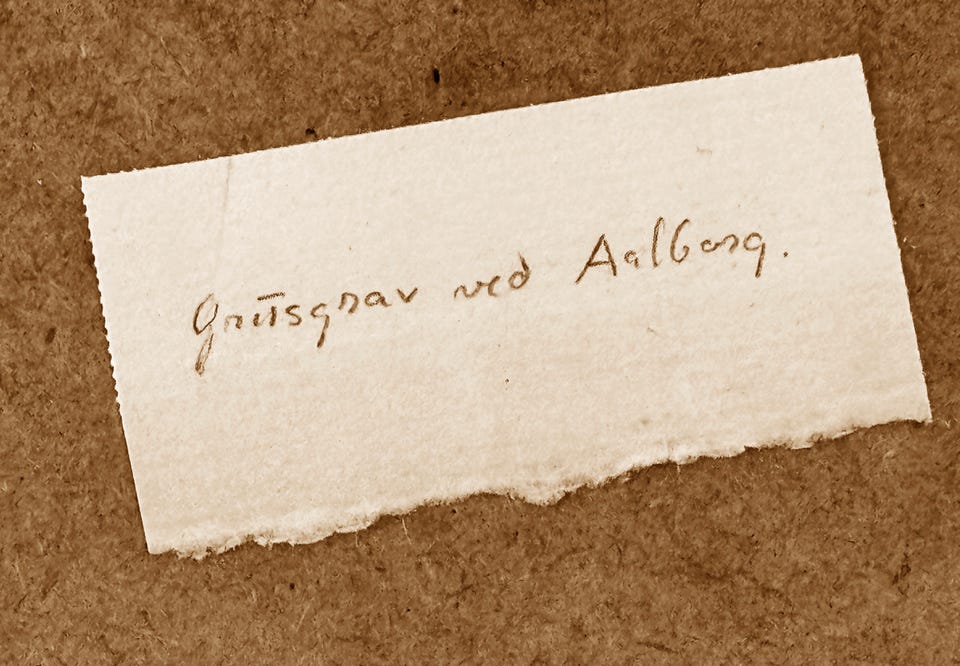 Grusgrav ved Aalborg.